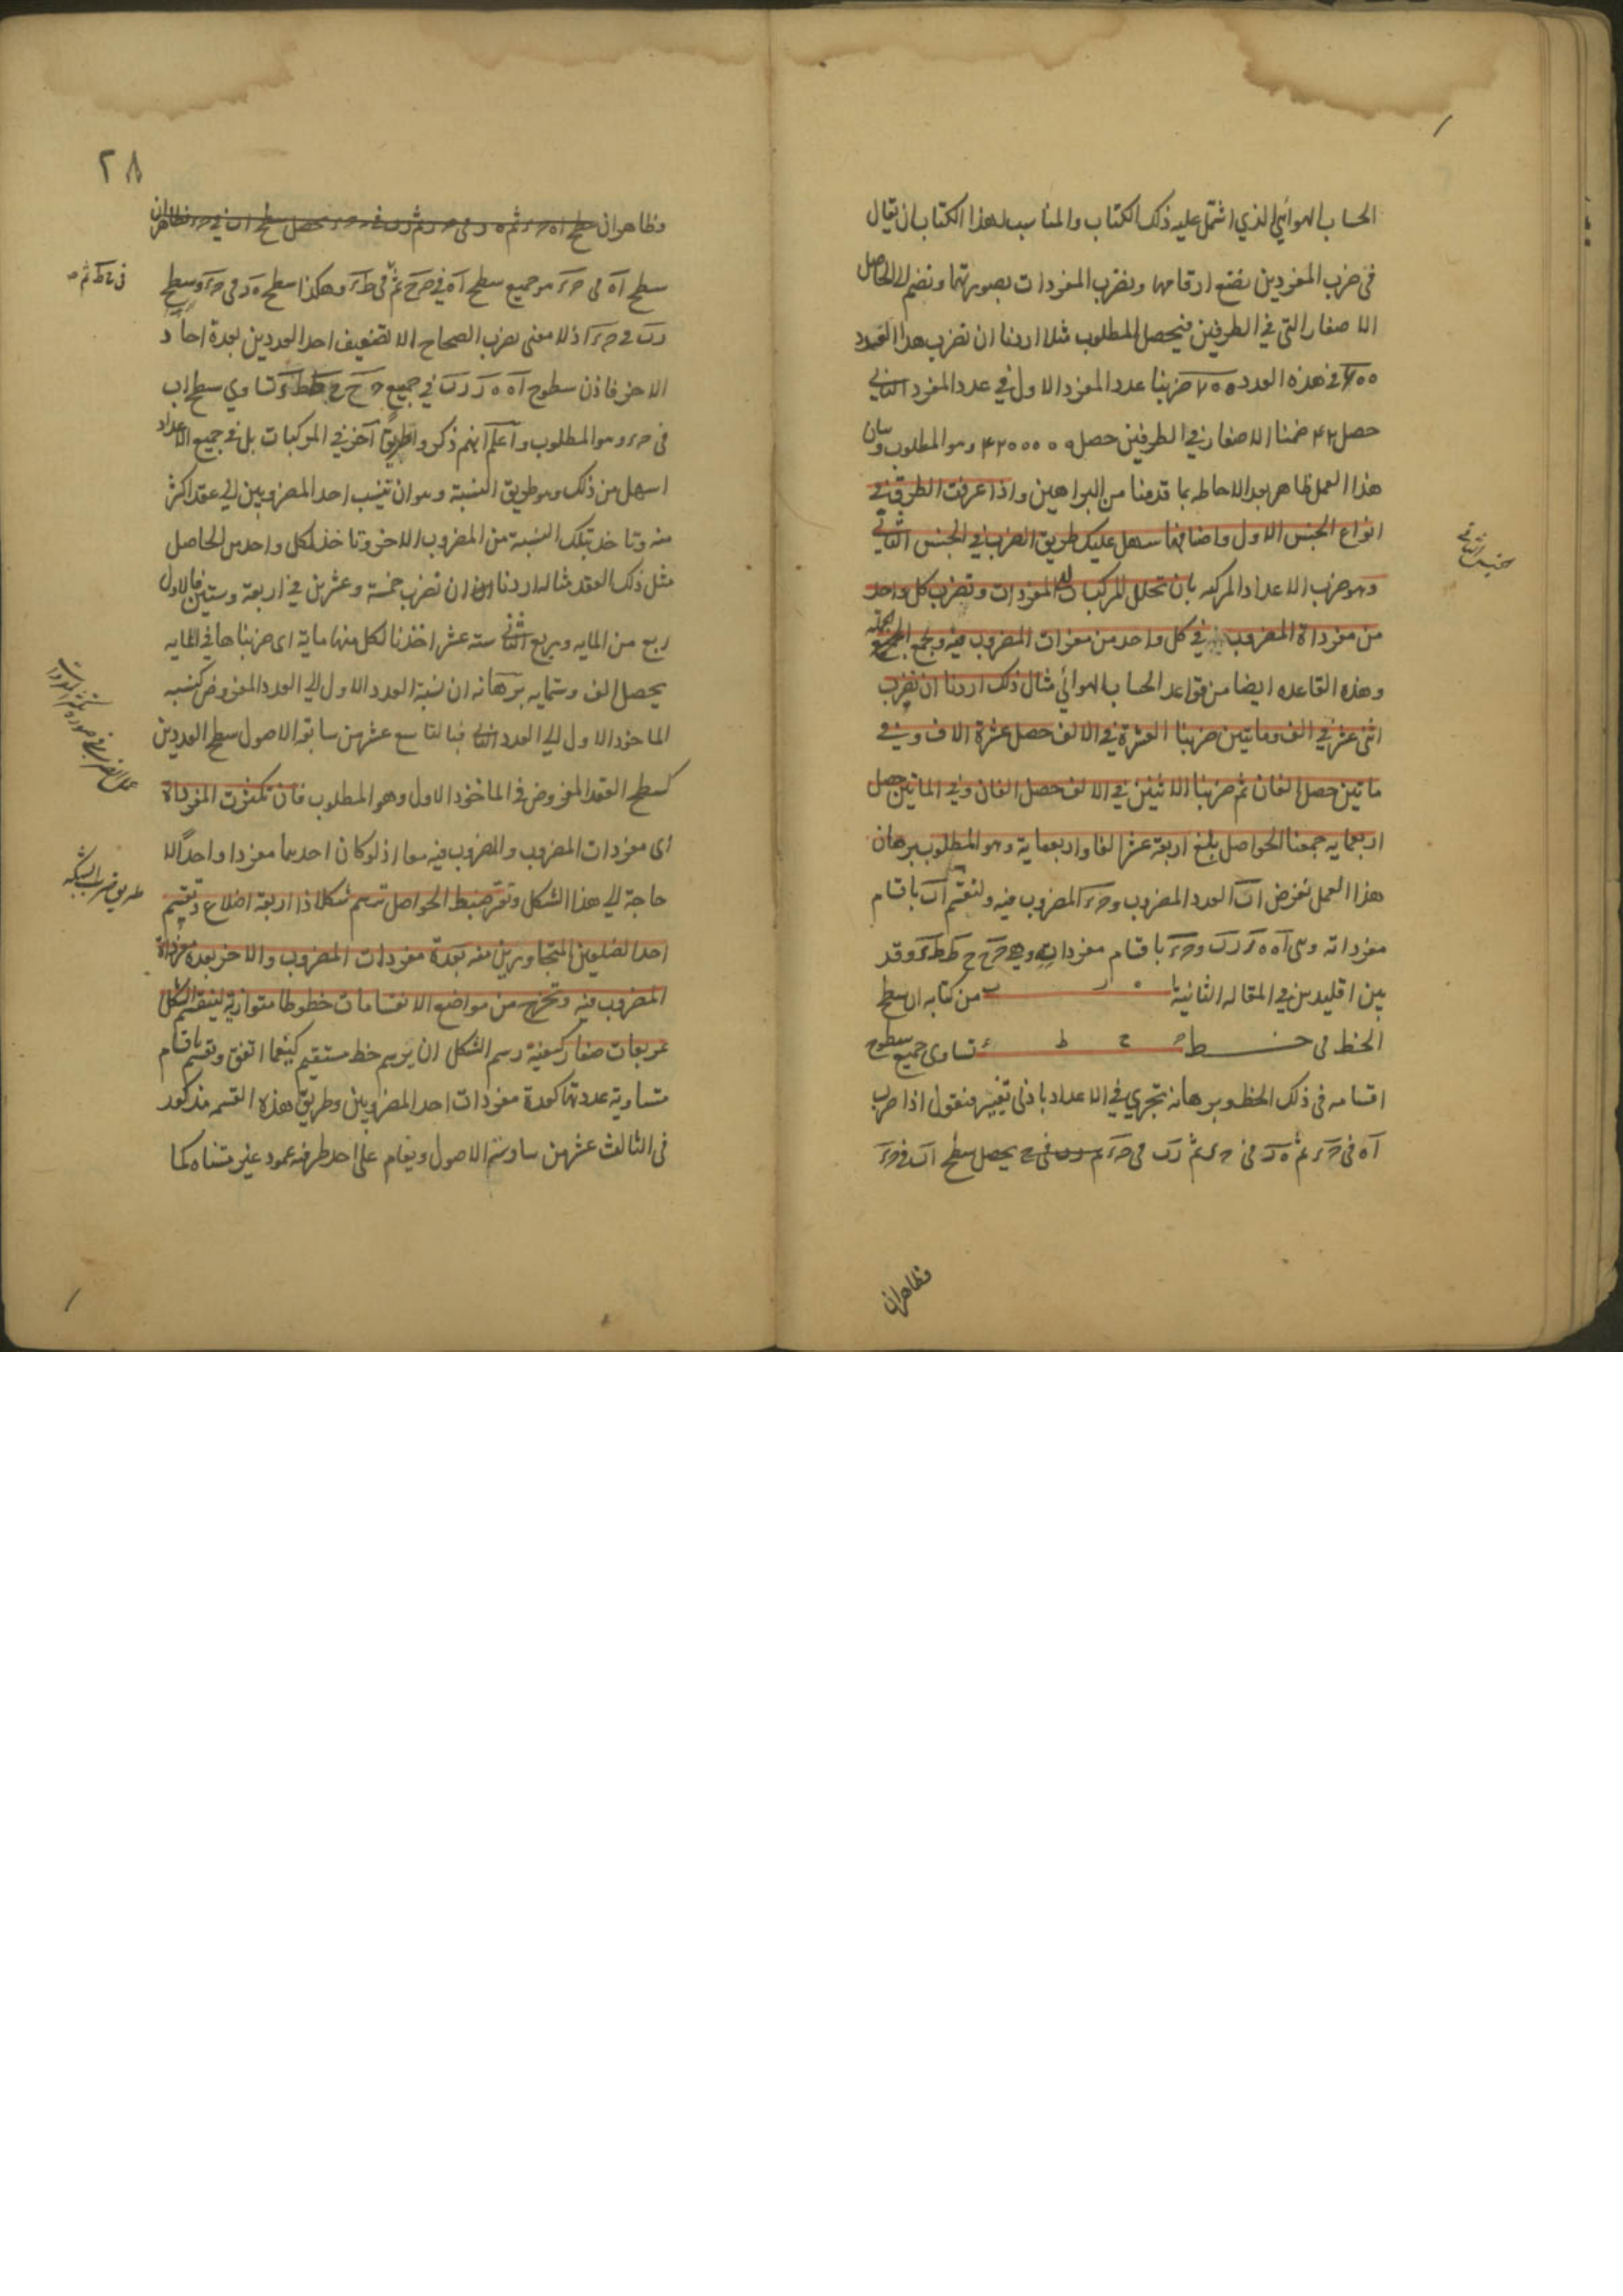 الحساب الهوائي الذي اشتمل عليه ذلك الكتاب والمناسب لهذا الكتاب ان يقال
في ضرب المفردين نضع ارقامها ونضرب المفردات بصورتهما ونضم الى الحاصل
الاصفار التي في الطرفين فيحصل المطلوب مثلا اردنا ان نضرب هذا العدد
في هذه العدد ضربنا عدد المفرد الاول في عدد المفرد الثاني
حصل ۴۲ ضمنا الاصفار في الطرفين حصل ۴۲۰۰۰۰۰ وهو المطلوب وبيان
هذا العمل ظاهر بعد الاحاطه بما قدمنا من البراهين واذا عرفت الطرق في
انواع الجنس الاول واضافها سهل عليك طريق الضرب في الجنس الثاني
وهو ضرب الاعداد المركبه بان تحلل المركبات الى المفردات وتضرب كل واحد
من مفرداة المضروب في كل واحد من مفردات المضروب فيه وتجمع
وهذه القاعده ايضا من قواعد الحساب الهوائي مثال ذلك اردنا ان نضرب
اثنى عشر في الف وماتين ضربنا العشرة في الالف حصل عشرة الاف وفي
ماتين حصل الفان ثم ضربنا الاثنين في الالف حصل الفان وفي الماتين حصل
اربعمايه جمعنا الحواصل بلغ اربعة عشر الفا واربعماية وهو المطلوب برهان
هذا العمل نفرض اب العدد المضروب و حء المضروب فيه ولنقسم اب باقسام
مفرداته وهى اه ه ر ر ب و حء باقسام مفرداته وهي ح ح ح ط ط ء وقد
بين اقليدس في المقاله الثانية ا ه ر ب من كتابه ان سطح
الخط فى خط ح ح ط ء تساوى جميع سطوح
اقسامه فى ذلك الخط وبرهانه تجري في الاعداد بادنى تغيير فنقول اذا ضرب
اه فى حء ثم ه ر فى حء ثم ر ب فى حء يحصل سطح اب في حء
فظاهران
الجنس الثاني
۲۸
وظاهر ان
سطح اه فى حء هو جميع سطح اه في ح ح ثم فى ط ء وهكذا سطح ه ر فى حء وسطح
ر ب في حء اذ لا معنى لضرب الصحاح الا تضعيف احد العددين بعدة احاد
الاخر فاذن سطوح اه ه ر ر ب في جميع ح ح ح ط ط ء تساوي سطح اب
فى حء وهو المطلوب واعلم انهم ذكروا طريقا آخر في المركبات بل في جميع الاعداد
اسهل من ذلك وهو طريق النسبة وهو ان تنسب احد المضروبين الى عقد اكثر
منه وتاخذ بتلك النسبة من المضروب الاخر وتاخذ لكل واحد من الحاصل
مثل ذلك العقد مثاله اردنا ان نضرب خمسة وعشرين في اربعة وستين فالاول
ربع من المايه وربع الثاني ستة عشر اخذنا لكل منها ماية اى ضربناها في المايه
يحصل الف وستمايه برهانه ان نسبة العدد الاول الى العدد المفروض كنسبه
الماخوذ الاول الى العدد الثاني فبالتاسع عشر من سابعة الاصول سطح العددين
كسطح العقد المفروض في الماخوذ الاول وهو المطلوب فان تكثرت المفرداة
اى مفردات المضروب والمضروب فيه معا اذ لو كان احدهما مفردا واحدا لا
حاجة الى هذا الشكل وتعسر ضبط الحواصل ترسم شكلا ذا اربعة اضلاع وتقسم
احد الضلعين المتجاورين منه بعدة مفردات المضروب والاخر بعدة مفرداة
المضروب فيه وتخرج من مواضع الانقسامات خطوطا متوازية لينقسم الشكل
مربعات صغار كيفية رسم الشكل ان يرسم خط مستقيم كيفما اتفق وتقسم باقسام
متساوية عددتها كعدة مفردات احد المضروبين وطريق هذه القسم مذكور
فى الثالث عشر من سادسة الاصول ويقام على احد طرفيه عمود غير متناه كما
طريق ضرب الشبكه